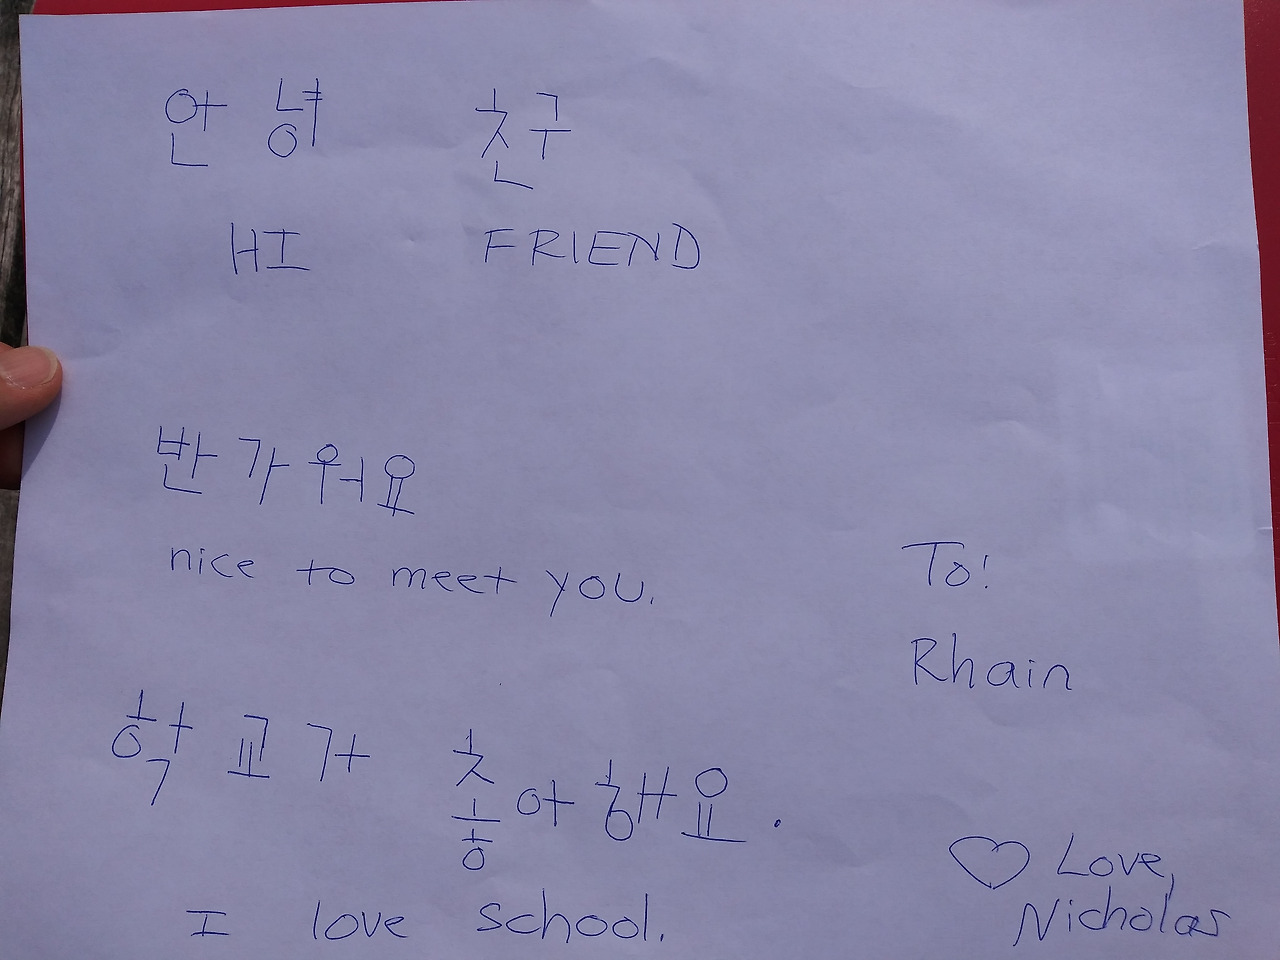 안녕 친구
HI FRIEND
반가워요
nice to meet you.
To!
Rhain
학교가 촣아해요.
I love school.
♡ Love,
Nicholas